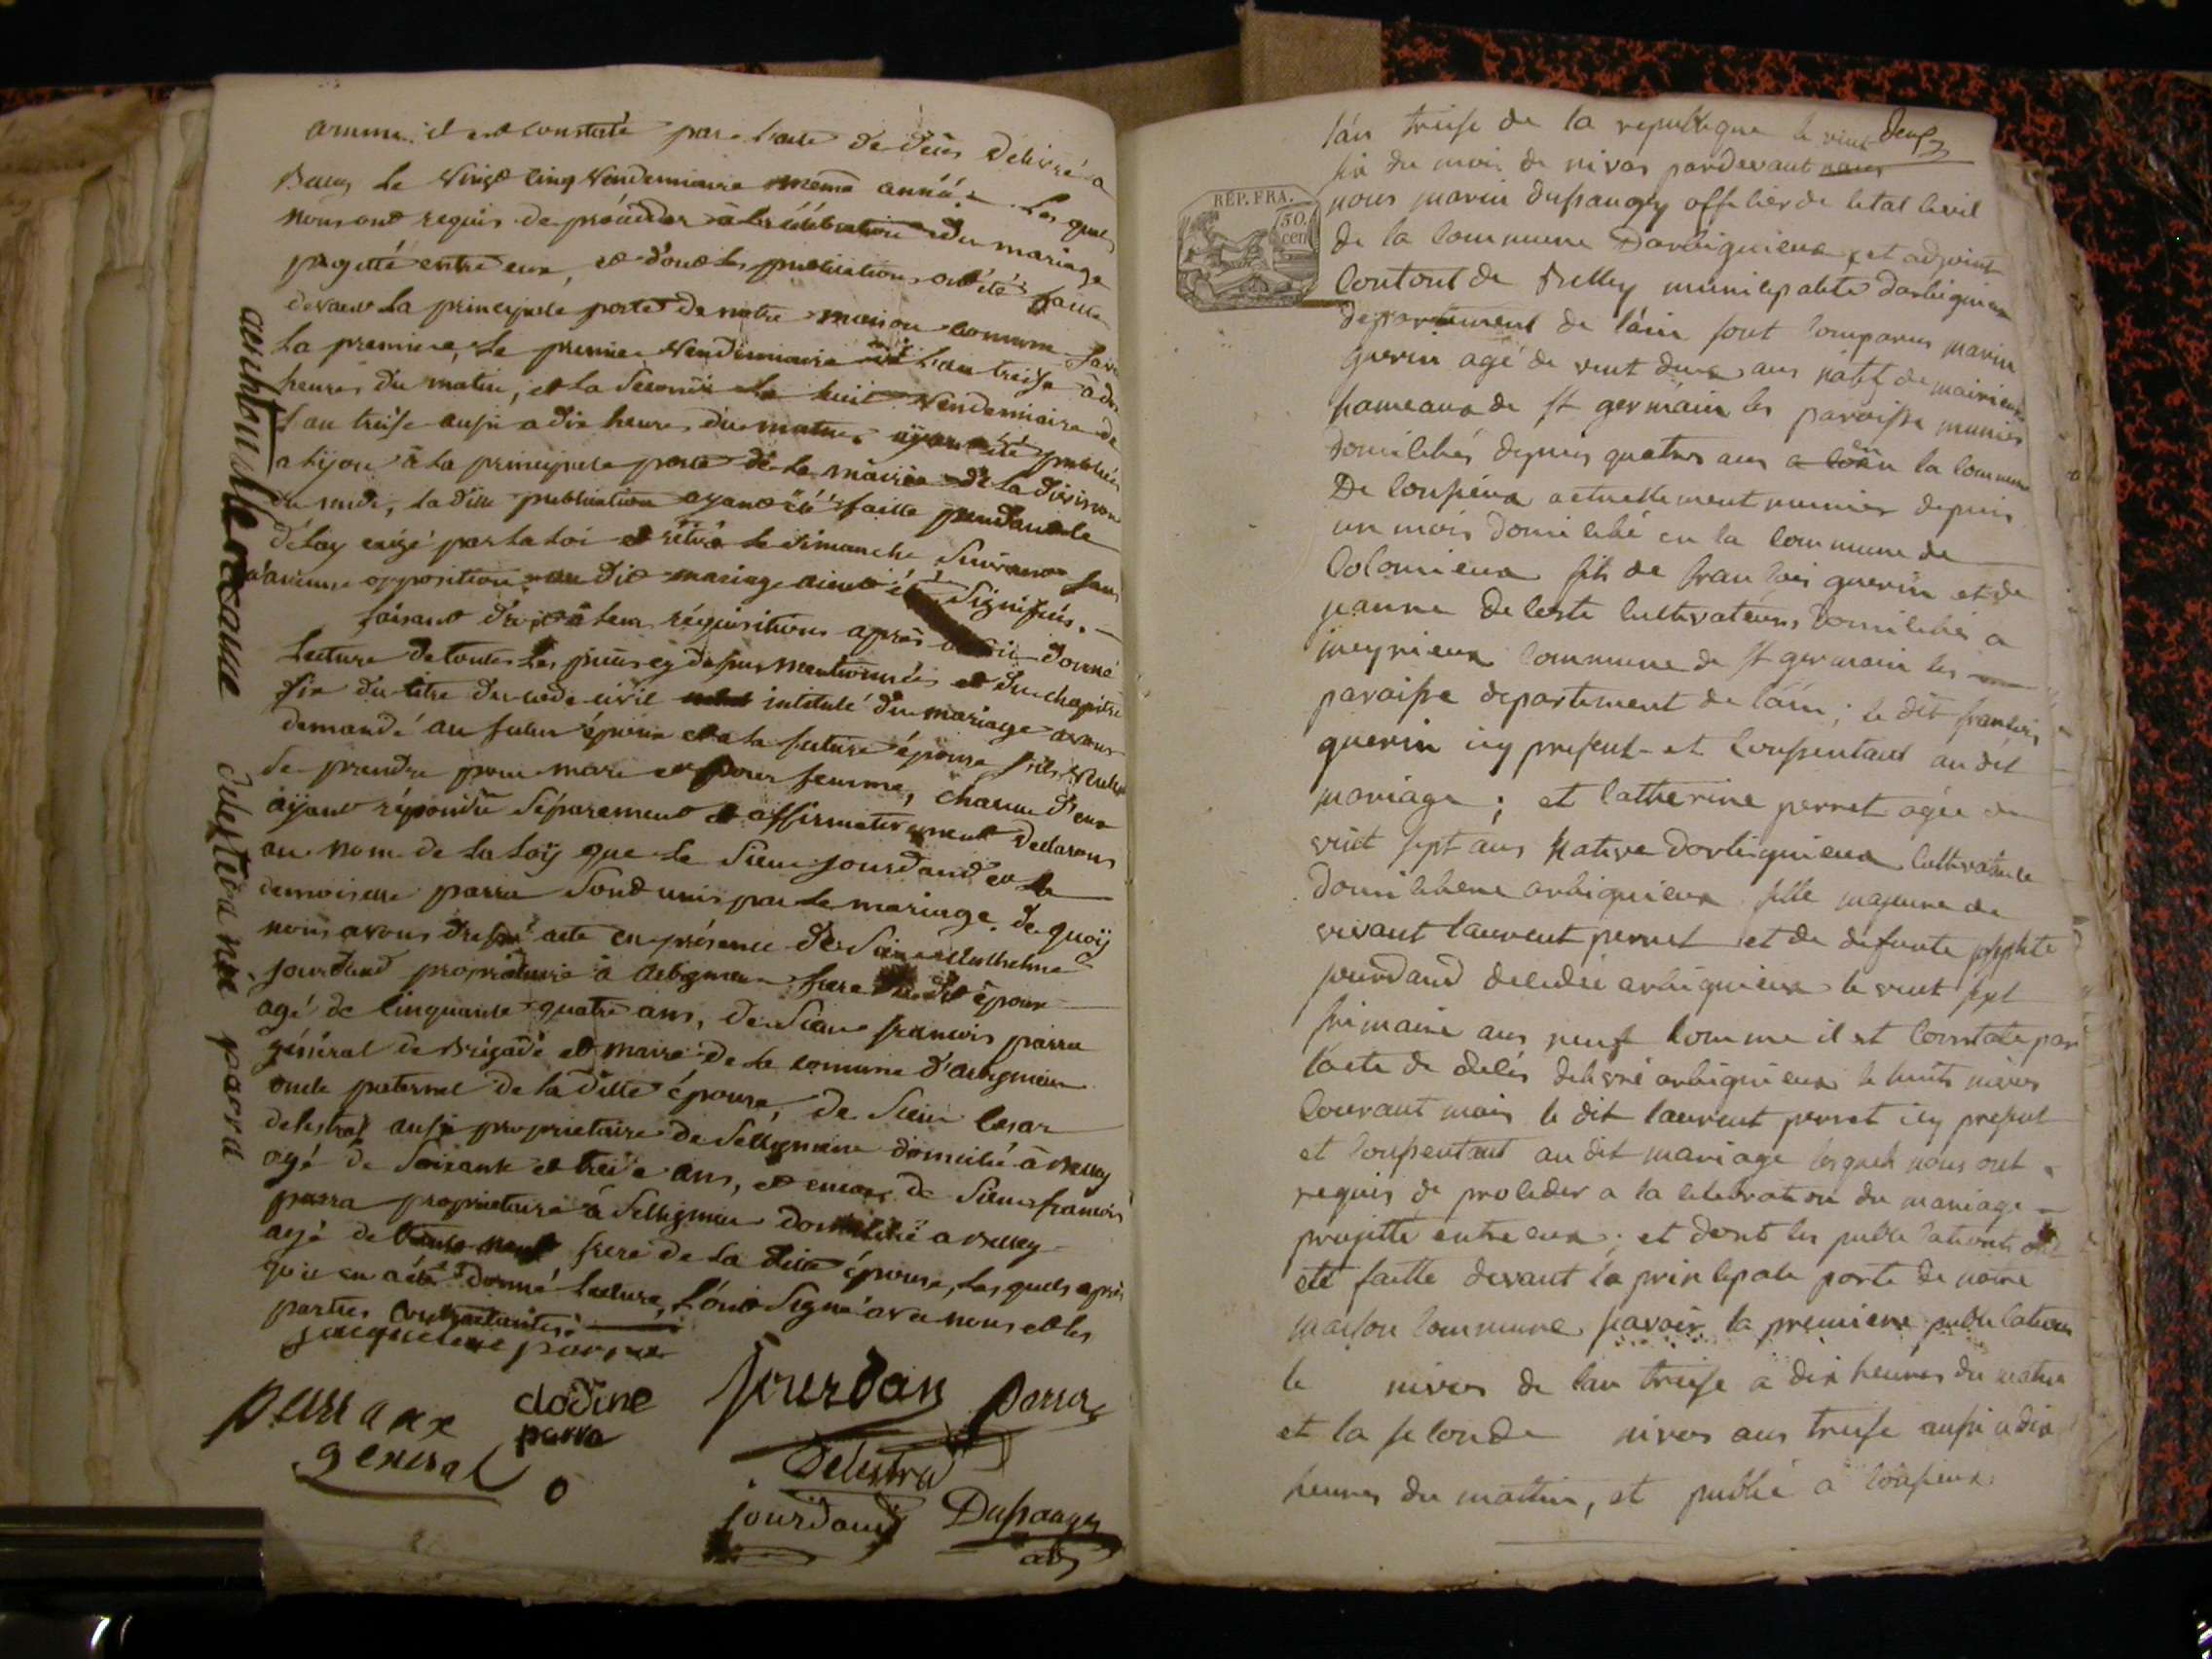 comme il est constaté par l'acte de décès délivré a
Belley le vingt cinq Vendemiaire même année. Les quels
nous ont requis de procéder à la célébration du mariage
projetté entre eux, et dont les publications ont été faites
devant la principale porte de notre maison comune
la premiere, le premier Vendemiaire l'an treise à dix
heures du matin, et la seconde le huit Vendemiaire
l'an treise aussi a dix heures du matin, ayant été publié
a Lyon à la principale porte de la mairie de la division
du midi, la ditte publication ayant été faitte pendant le
délay exigé par la loi et le dimanche suivant sans
qu'aucune opposition au dit mariage aient été signifiés.
faisant droit à leur réquisitions après avoir donné
lecture de toutes les pièces cy dessus mentionnées et du chapitre
six du titre du code civil intitulé du mariage avons
demandé au futur époux et a la future épouse s'ils veulent
se prendre pour mari et pour femme, chacun d'eux
ayant répondu séparement et affirmativement declarons
au nom de la loÿ que le Sieur jourdand et la
demoiselle parra sond unis par le mariage. de quoÿ
nous avons dressé acte en présence de Sieur
jourdand propriétaire à arbignieu frere du dit époux
agé de cinquante quatre ans, de Sieur francois parra
général de Brigade et maire de la comune d'arbignieu
oncle paternel de la ditte épouse, de Sieur cesar
delestral aussi proprietaire de Sellignieu domicilié à Belley
agé de soixante et treize ans, et encore de Sieur francois
parra proprietaire à Sellignieu domicilié a Belley
agé de frere de la ditte épouse, les quels après
qu'il en a été donné lecture, l'ont signé avec nous et les
parties contractantes.
jacqueline parra
parraxx
general
clodine
parra
jourdan
parra
Delestra
jourdand
Dussauges
adj
delestra née parra
l'an treise de la republique le vint deux
six du mois de nivos pardevant nous
RÉP. FRA.
50.
cen
nous marin dussaugey officier de létat civil
de la commune Darbignieux et adjoint
Contont de Belley municipalité darbignieu
departement de l'ain sont comparus marin
guerin agé de vint deux ans natif de meirieux
hameaux de st germain les paroisse munier
domiciliés depuis quatres ans en la commune
De conpieux actuellement munier depuis
un mois domicilié en la commune de
Colomieux fils de francois guerin et de
jeanne deleste cultivateurs domiciliés a
meyrieux commune de st germain les
paroisse departement de l'ain; le dit francois
guerin icy present et conssentant au dit
mariage; et catherine perret agée de
vint sept ans native darbignieux cultivatrice
domiciliene arbignieux fille majeure de
vivant laurent perret et de defunte josephte
jourdand decedée arbignieux le vint sept
frimaire ans neuf comme il est constate par
l'acte de décés delivré arbignieux le huits nivos
courant mais le dit laurent perret icy present
et conssentant au dit mariage lesquels nous ont
requis de proceder a la celebration du mariage
projetté entre eux; et dont les publications ont
eté faitte devant la principale porte de notre
maison commune savoir la premiere publication
le nivos de l'an treise a dix heures du matin
et la seconde nivos ans treise aussi a dix
heures du mattin, et publié a conpieux